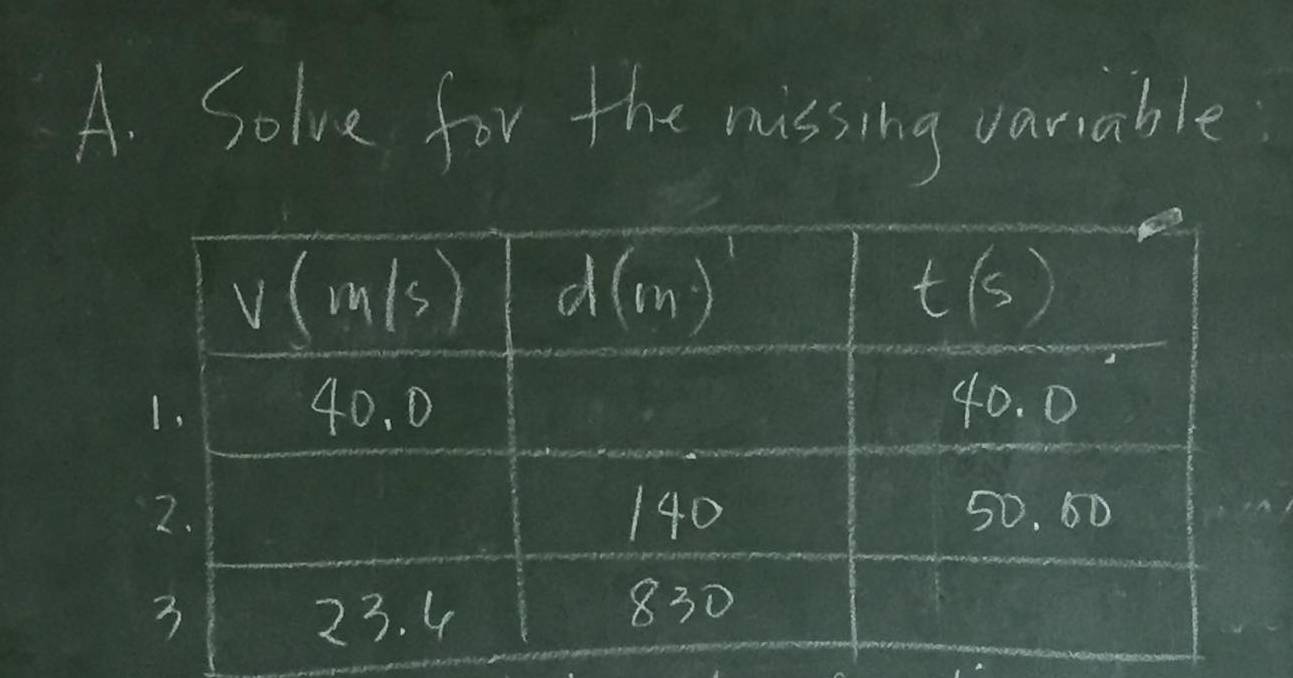 A. Solve for the missing variable:
v(m/s) d(m) t(s)
1. 40.0 40.0
2. 140 50.00
3 23.4 830